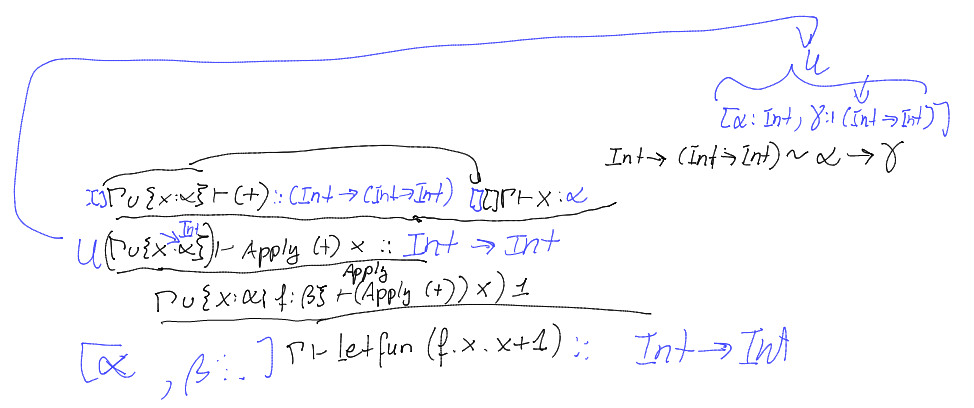 U
[α : Int, γ :: (Int → Int)]
Int → (Int → Int) ~ α → γ
[] Γ ∪ {x:α} ⊢ (+) :: (Int → (Int → Int) [] [] Γ ⊢ x : α
Int
U (Γ ∪ {x:α}) ⊢ Apply (+) x :: Int → Int
Apply
Γ ∪ {x:α, f:β} ⊢ (Apply (+)) x) 1
[α , β :: . ] Γ ⊢ letfun (f. x. x+1) :: Int → Int